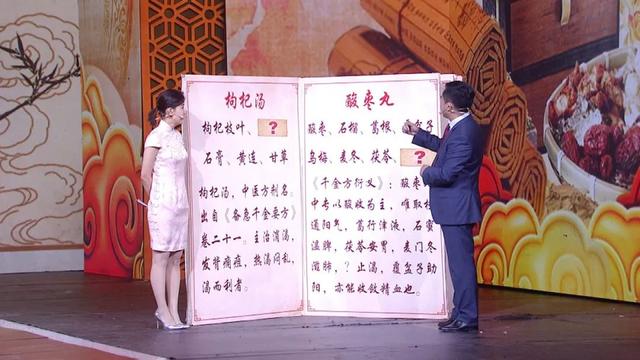 枸杞汤
枸杞枝叶、?
石膏、黄连、甘草
枸杞汤，中医方剂名。
出自《备急千金要方》
卷二十一。主治消渴，
发背痈疽，热渴闷乱，
渴而利者。
酸枣丸
酸枣、石榴、葛根、覆盆子
乌梅、麦冬、茯苓、?
《千金方衍义》：酸枣
中专以酸收为主，唯取桂
通阳气，葛行津液，石蜜
温脾，茯苓安胃，麦门冬
滋肺，?止渴，覆盆子助
阳，亦能收敛精血也。